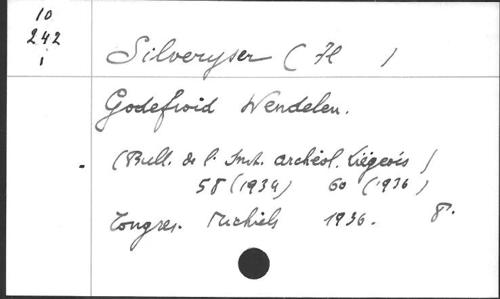 10
242
1
Silveryser ( Fl )
Godefroid Wendelen.
(Bull. de l'Inst. archéol. Liégeois)
58 (1934) 60 (1936)
Tongres. Michiels 1936. 8°.